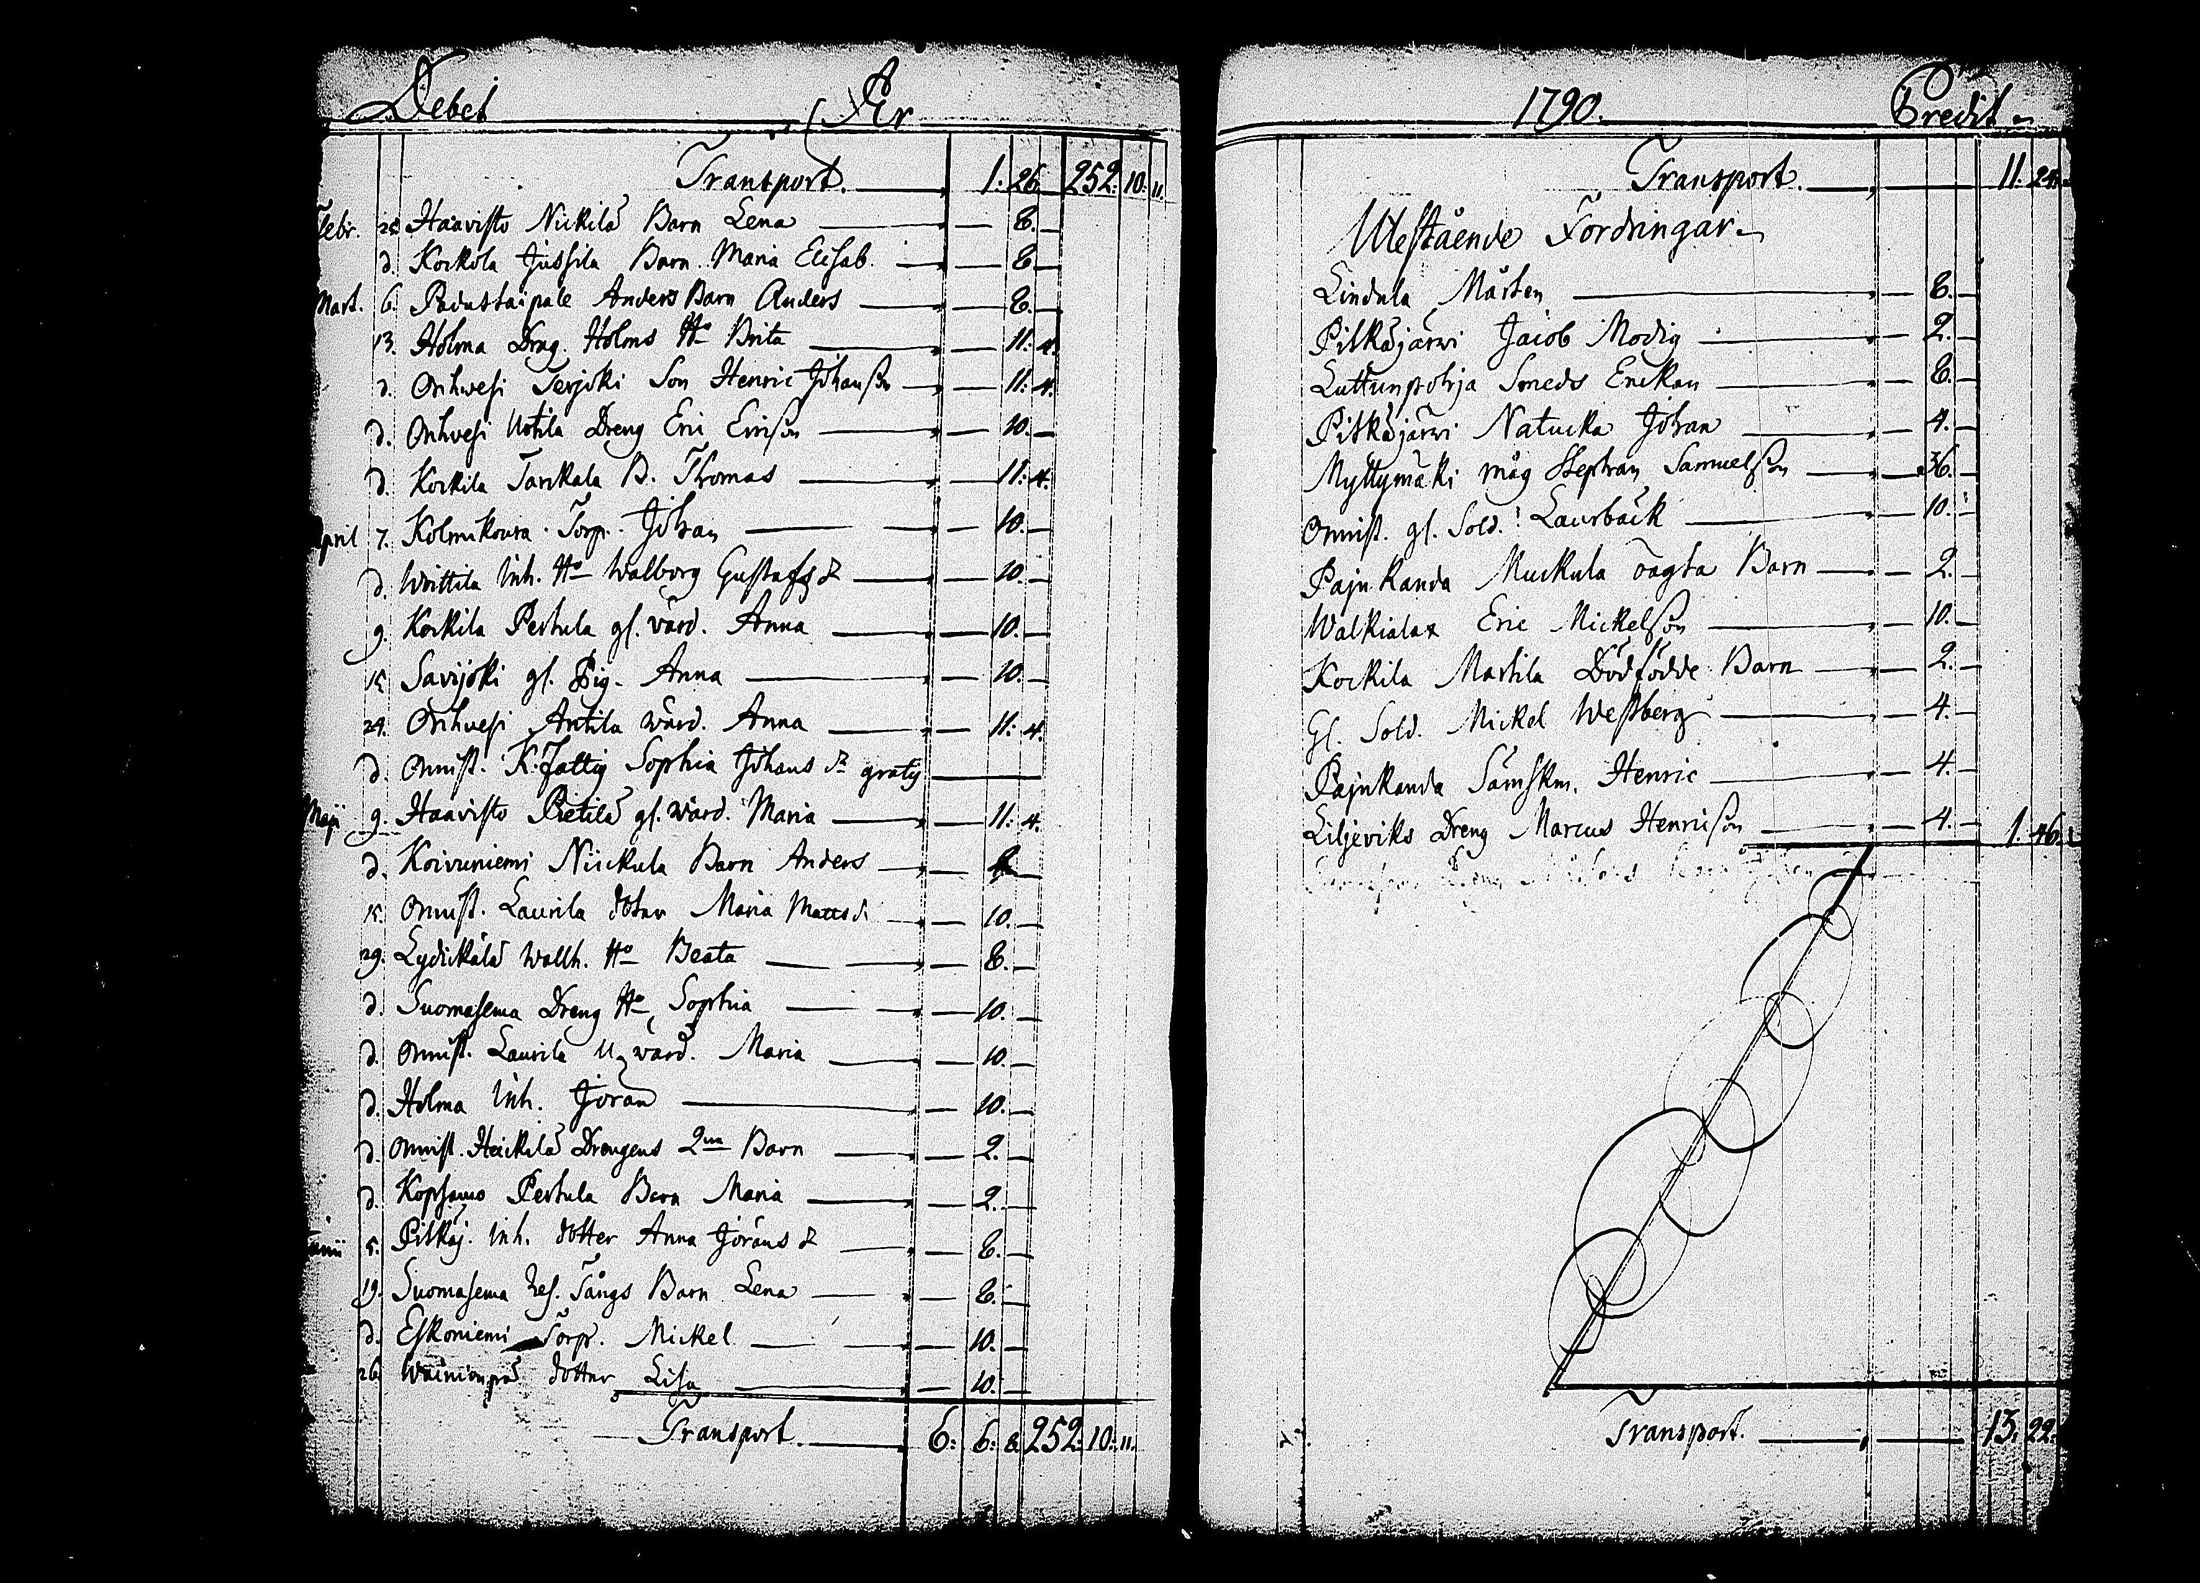 Debet År
Transport. 1. 26. 252. 10. 11.
Febr. 25 Haavisto Nickilä Barn Lena 8.
d. Kockola Jussila Barn Maria Elisab. 8.
Mart. 6. Padustaipale Anders Barn Anders 8.
13. Holma Drag. Holms Ho Brita 11. 4.
d. Orihvesi Terjoki Son Henric Johansson 11. 4.
d. Orihvesi Uotila Dreng Eric Ericson 10.
d. Kockila Tarckala B. Thomas 11. 4.
April 7. Kolmikoura Torp. Johan 10.
d. Voittila Inh. Ho Walborg Gustafs dr 10.
9. Kockila Pertula gl. värd. Anna 10.
15 Savijoki gl. Pig. Anna 10.
24. Orihvesi Antila värd. Anna 11. 4.
d. Onnist. K. fattig Sophia Johans dr gratis
Maji 9. Haavisto Pietilä gl. wärd. Maria 11. 4.
d. Koivuniemi Niickula Barn Anders 8
15. Onnist. Laurila dotter Maria Matts d. 10.
29. Lydickälä Wallh. Ho Beata 8.
d. Suomasema Dreng Ho Sophia 10.
d. Onnist. Laurila u. värd. Maria 10.
d. Holma Inh. Jöran 10.
d. Onnist. Heickilä Drengens 2ne Barn 2.
d. Kopsamo Pertula Barn Maria 2.
Junii 5. Pitkäj. Inh. dotter Anna Jörans dr 8.
19. Suomasema Res. Tångs Barn Lena 8.
d. Eskoniemi Torp. Mickel 10.
26 Wäinionpää dotter Lisa 10.
Transport 6. 6. 8. 252. 10. 11.
1790. Credit
Transport. 11. 24.
Utestående Fordringar
Lindula Mårten 8.
Pitkäjärvi Jacob Modig 2.
Luttunpohja Smeds Enckan 8.
Pitkäjärvi Natucka Johan 4.
Myttymäki måg Stephan Samuelsson 36.
Onnist. gl. Sold. Laurbäck 10.
Pajukanda Muckula oägta Barn 2.
Walkialax Eric Mickelsson 10.
Kockila Martila Dödfödde Barn 2.
Gl. Sold. Mickel Westberg 4.
Pajukanda Sämskm. Henric 4.
Liljeviks Dreng Marcus Henricson 4. 1. 46.
Transport. 13. 22.